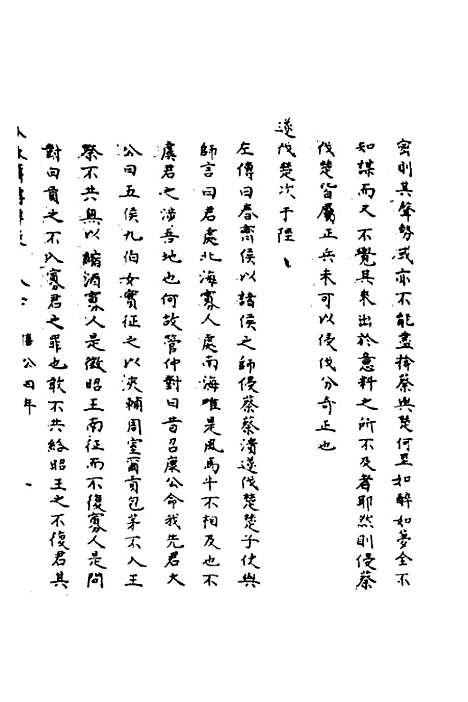 密則其聲勢或亦不能盡掩蔡與楚何至如醉如夢全不
知謀而又不覺其來出於意料之所不及者耶然則侵蔡
伐楚皆屬正兵未可以侵伐分奇正也
遂伐楚次于陘
左傳曰春齊侯以諸侯之師侵蔡蔡潰遂伐楚楚子使與
師言曰君處北海寡人處南海唯是風馬牛不相及也不
虞君之涉吾地也何故管仲對曰昔召康公命我先君大
公曰五侯九伯女實征之以夾輔周室爾貢包茅不入王
祭不共無以縮酒寡人是徵昭王南征而不復寡人是問
對曰貢之不入寡君之罪也敢不共給昭王之不復君其
僖公四年